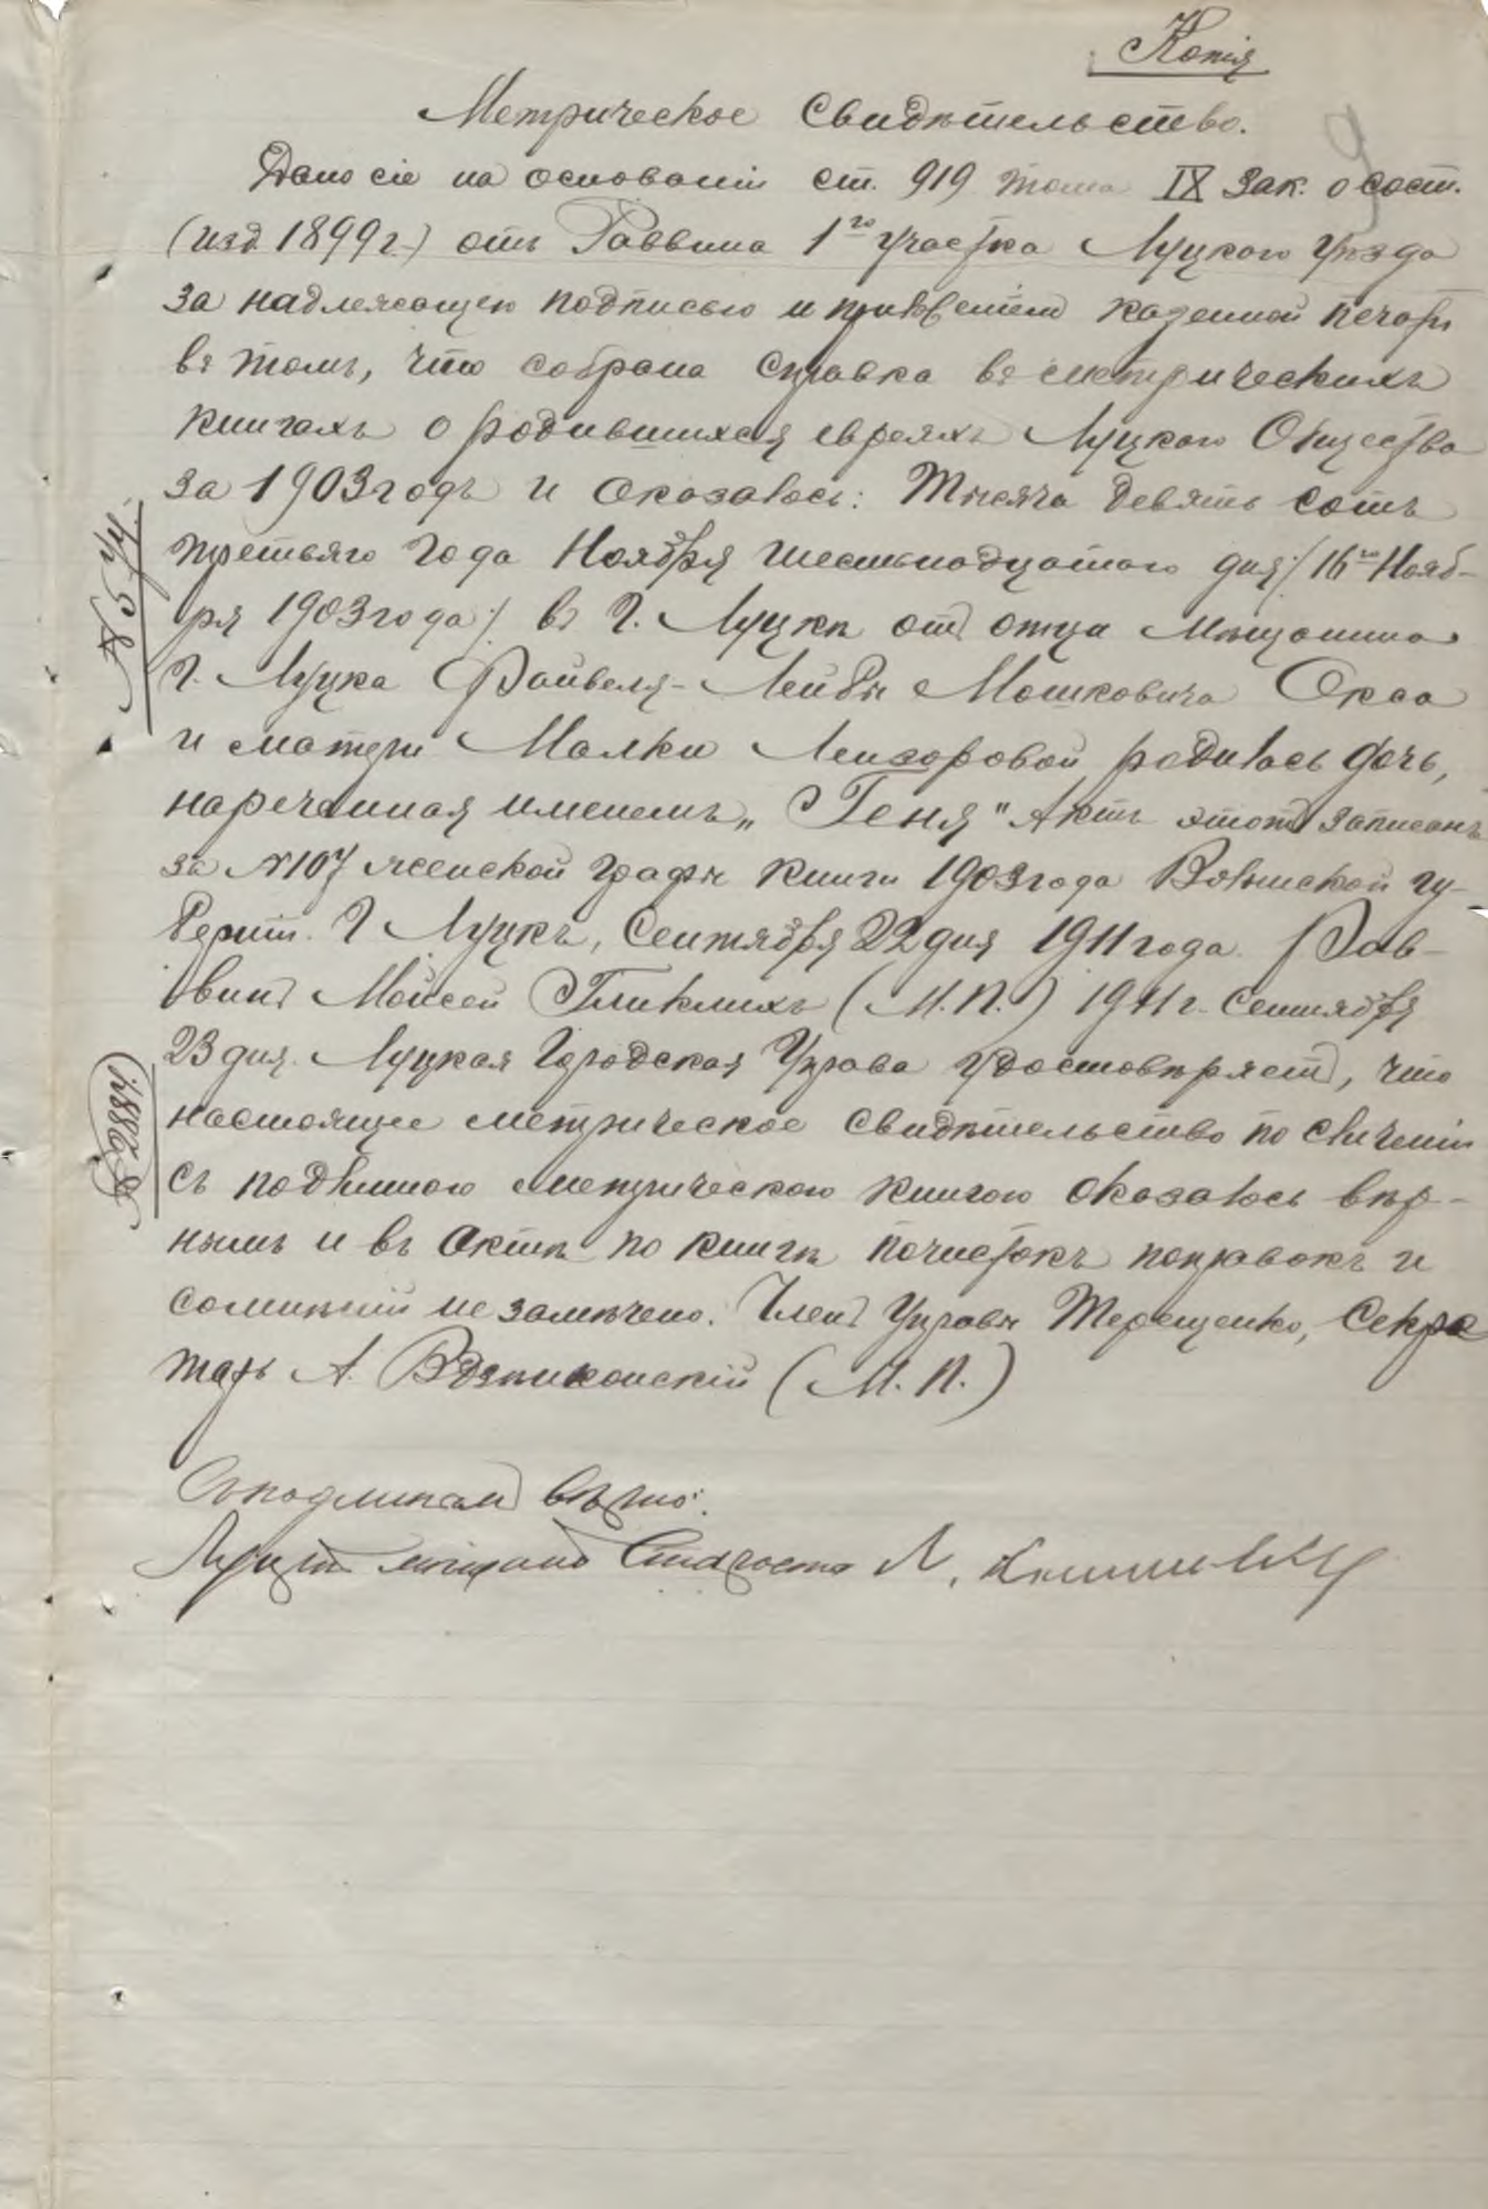 Копія
Метрическое Свидѣтельство.
Дано сіе на основаніи ст. 919 тома IX Зак. о сост.
(изд. 1899 г.) отъ Раввина 1го участка Луцкаго Уѣзда
за надлежащею подписью и приложеніемъ казенной печати
въ томъ, что собрана справка въ метрическихъ
книгахъ о родившихся евреяхъ Луцкаго Общества
за 1903 годъ и оказалось: Тысяча девять сотъ
третьяго года Ноября шестьнадцатаго дня /:16го Нояб-
ря 1903 года:/ въ г. Луцкѣ отъ отца Мѣщанина
г. Луцка Файвеля-Лейбы Мошковича Окса
и матери Малки Лейзоровой родилась дочь,
нареченная именемъ „Геня" Актъ этотъ записанъ
за №107 женской графы книги 1903 года Волынской гу-
берніи. г Луцкъ, Сентября 22 дня 1911 года. Рав-
винъ Моисей Гликлихъ (М.П.) 1911 г. Сентября
23 дня. Луцкая Городская Управа удостовѣряетъ, что
настоящее метрическое свидѣтельство по сличеніи
съ подлинною метрическою книгою оказалось вѣр-
нымъ и въ актѣ по книгѣ почистокъ поправокъ и
сомнѣній не замѣчено. Членъ Управы Терещенко, Секре
тарь А. (М.П.)
Съ подлиннымъ вѣрно:
Луцкій мѣщанскій Староста Л.
№ 544.
№ 2884